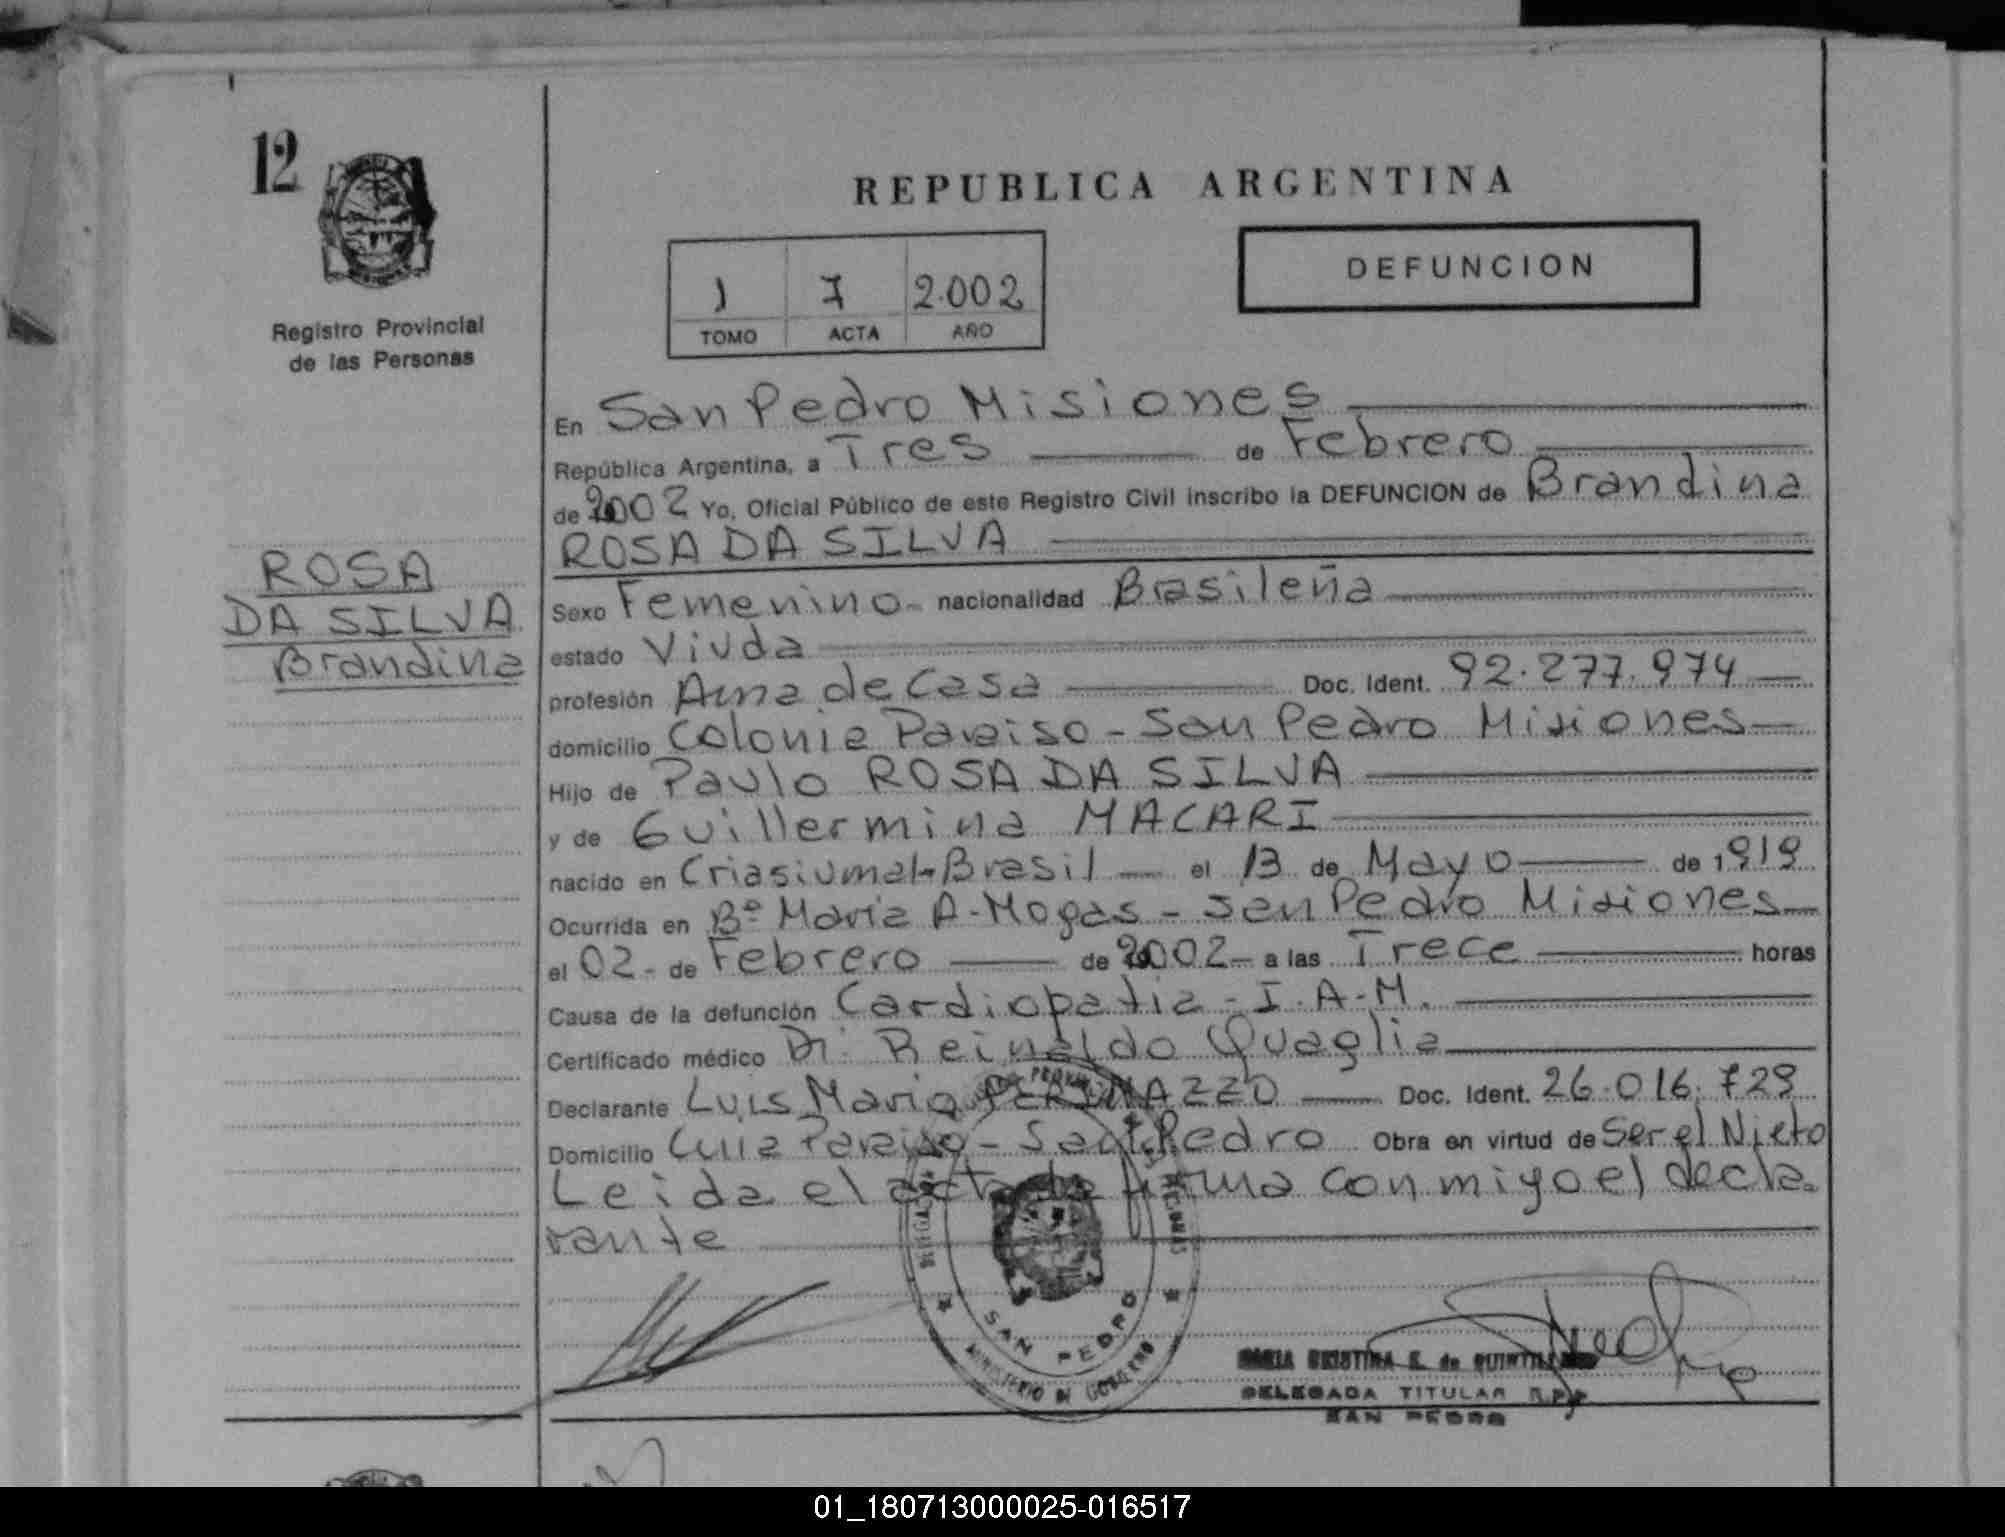 12
Registro Provincial
de las Personas
ROSA
DA SILVA
Brandina
REPUBLICA ARGENTINA
1 7 2.002
TOMO ACTA AÑO
DEFUNCION
En San Pedro Misiones
República Argentina, a Tres de Febrero
de 2002 Yo, Oficial Público de este Registro Civil inscribo la DEFUNCION de Brandina
ROSA DA SILVA
Sexo Femenino nacionalidad Brasileña
estado Viuda
profesión Ama de Casa Doc. Ident. 92.277.974
domicilio Colonia Paraiso - San Pedro Misiones
Hijo de Paulo ROSA DA SILVA
y de Guillermina MACARI
nacido en Criasiumal-Brasil el 13 de Mayo de 1919
Ocurrida en Bº Maria A. Mogas - San Pedro Misiones
el 02 - de Febrero de 2002 a las Trece horas
Causa de la defunción Cardiopatia - I.A.M.
Certificado médico Dr. Reinaldo Quaglia
Declarante Luis Mario Doc. Ident. 26.016.729
Domicilio Paraiso - San Pedro Obra en virtud de Ser el Nieto
Leida el acta la firma conmigo el decla
rante
SAN PEDRO
MINISTERIO DE GOBIERNO
MARIA CRISTINA E. de
DELEGADA TITULAR R.P.P.
SAN PEDRO
01_180713000025-016517